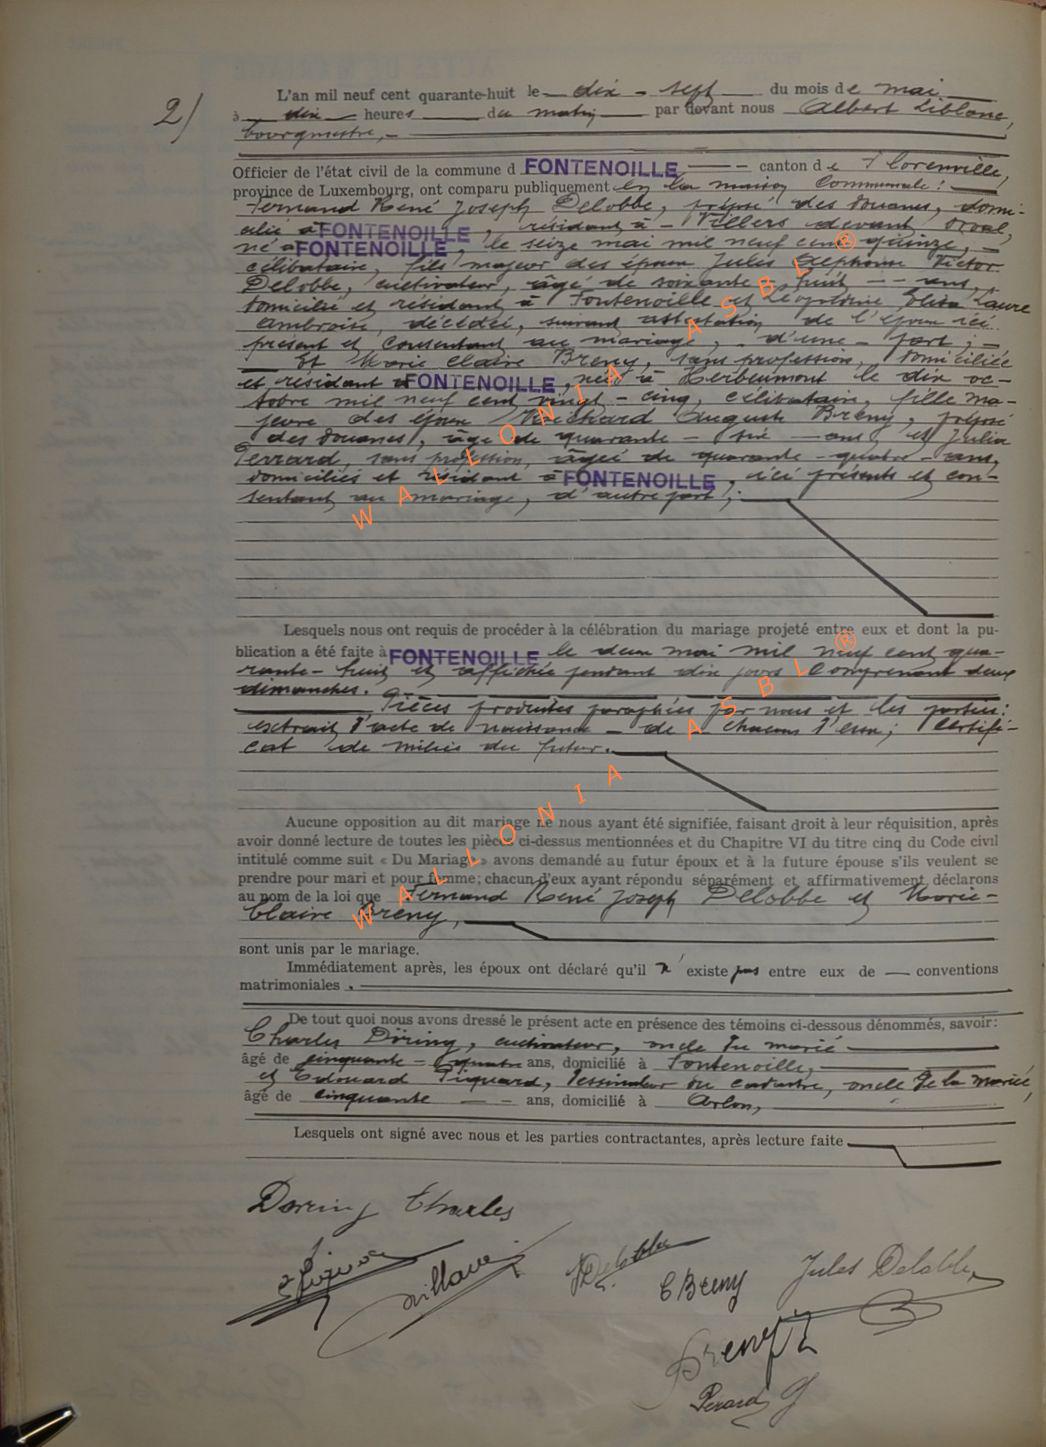 2/
L'an mil neuf cent quarante-huit le dix-sept du mois de mai
à dix heures du matin par devant nous Albert
bourgmestre,
Officier de l'état civil de la commune d FONTENOILLE canton de Florenville,
province de Luxembourg, ont comparu publiquement en la maison Communale:
Fernand René Joseph Delobbe, préposé des douanes, domi-
cilié à FONTENOILLE, résidant à Villers devant Orval,
né à FONTENOILLE, le seize mai mil neuf cent quinze,
célibataire, fils majeur des époux Jules Victor
Delobbe, cultivateur, âgé de soixante-huit ans,
domicilié et résidant à Fontenoille et Léopoldine Laure
Ambroise, décédée, suivant attestation de l'époux ici
présent et consentant au mariage, d'une part;
Et Marie Claire Breny, sans profession, domiciliée
et résidant à FONTENOILLE, née à Herbeumont le dix oc-
tobre mil neuf cent vingt-cinq, célibataire, fille ma-
jeure des époux Auguste Breny, préposé
des douanes, âgé de quarante-six ans, et Julia
sans profession, âgée de quarante-quatre ans,
domiciliés et résidant à FONTENOILLE, ici présents et con-
sentant au mariage, d'autre part;
WALLONIA ASBL ®
Lesquels nous ont requis de procéder à la célébration du mariage projeté entre eux et dont la pu-
blication a été faite à FONTENOILLE le deux mai mil neuf cent qua-
rante-huit et affichée pendant dix jours comprenant deux
dimanches.
Pièces produites paraphées par nous et les parties:
extrait d'acte de naissance de chacun d'eux; Certifi-
cat de milice du futur.
Aucune opposition au dit mariage ne nous ayant été signifiée, faisant droit à leur réquisition, après
avoir donné lecture de toutes les pièces ci-dessus mentionnées et du Chapitre VI du titre cinq du Code civil
intitulé comme suit « Du Mariage » avons demandé au futur époux et à la future épouse s'ils veulent se
prendre pour mari et pour femme; chacun d'eux ayant répondu séparément et affirmativement, déclarons
au nom de la loi que Fernand René Joseph Delobbe et Marie-
Claire Breny,
WALLONIA ASBL ®
sont unis par le mariage.
Immédiatement après, les époux ont déclaré qu'il n'existe pas entre eux de conventions
matrimoniales.
De tout quoi nous avons dressé le présent acte en présence des témoins ci-dessous dénommés, savoir:
Charles Döring, cultivateur, oncle du marié
âgé de cinquante-quatre ans, domicilié à Fontenoille,
et Edouard Piquard, dessinateur du cadastre, oncle de la mariée,
âgé de cinquante ans, domicilié à Arlon,
Lesquels ont signé avec nous et les parties contractantes, après lecture faite
Doring Charles
Delobbe
C Breny
Jules Delobbe
Breny